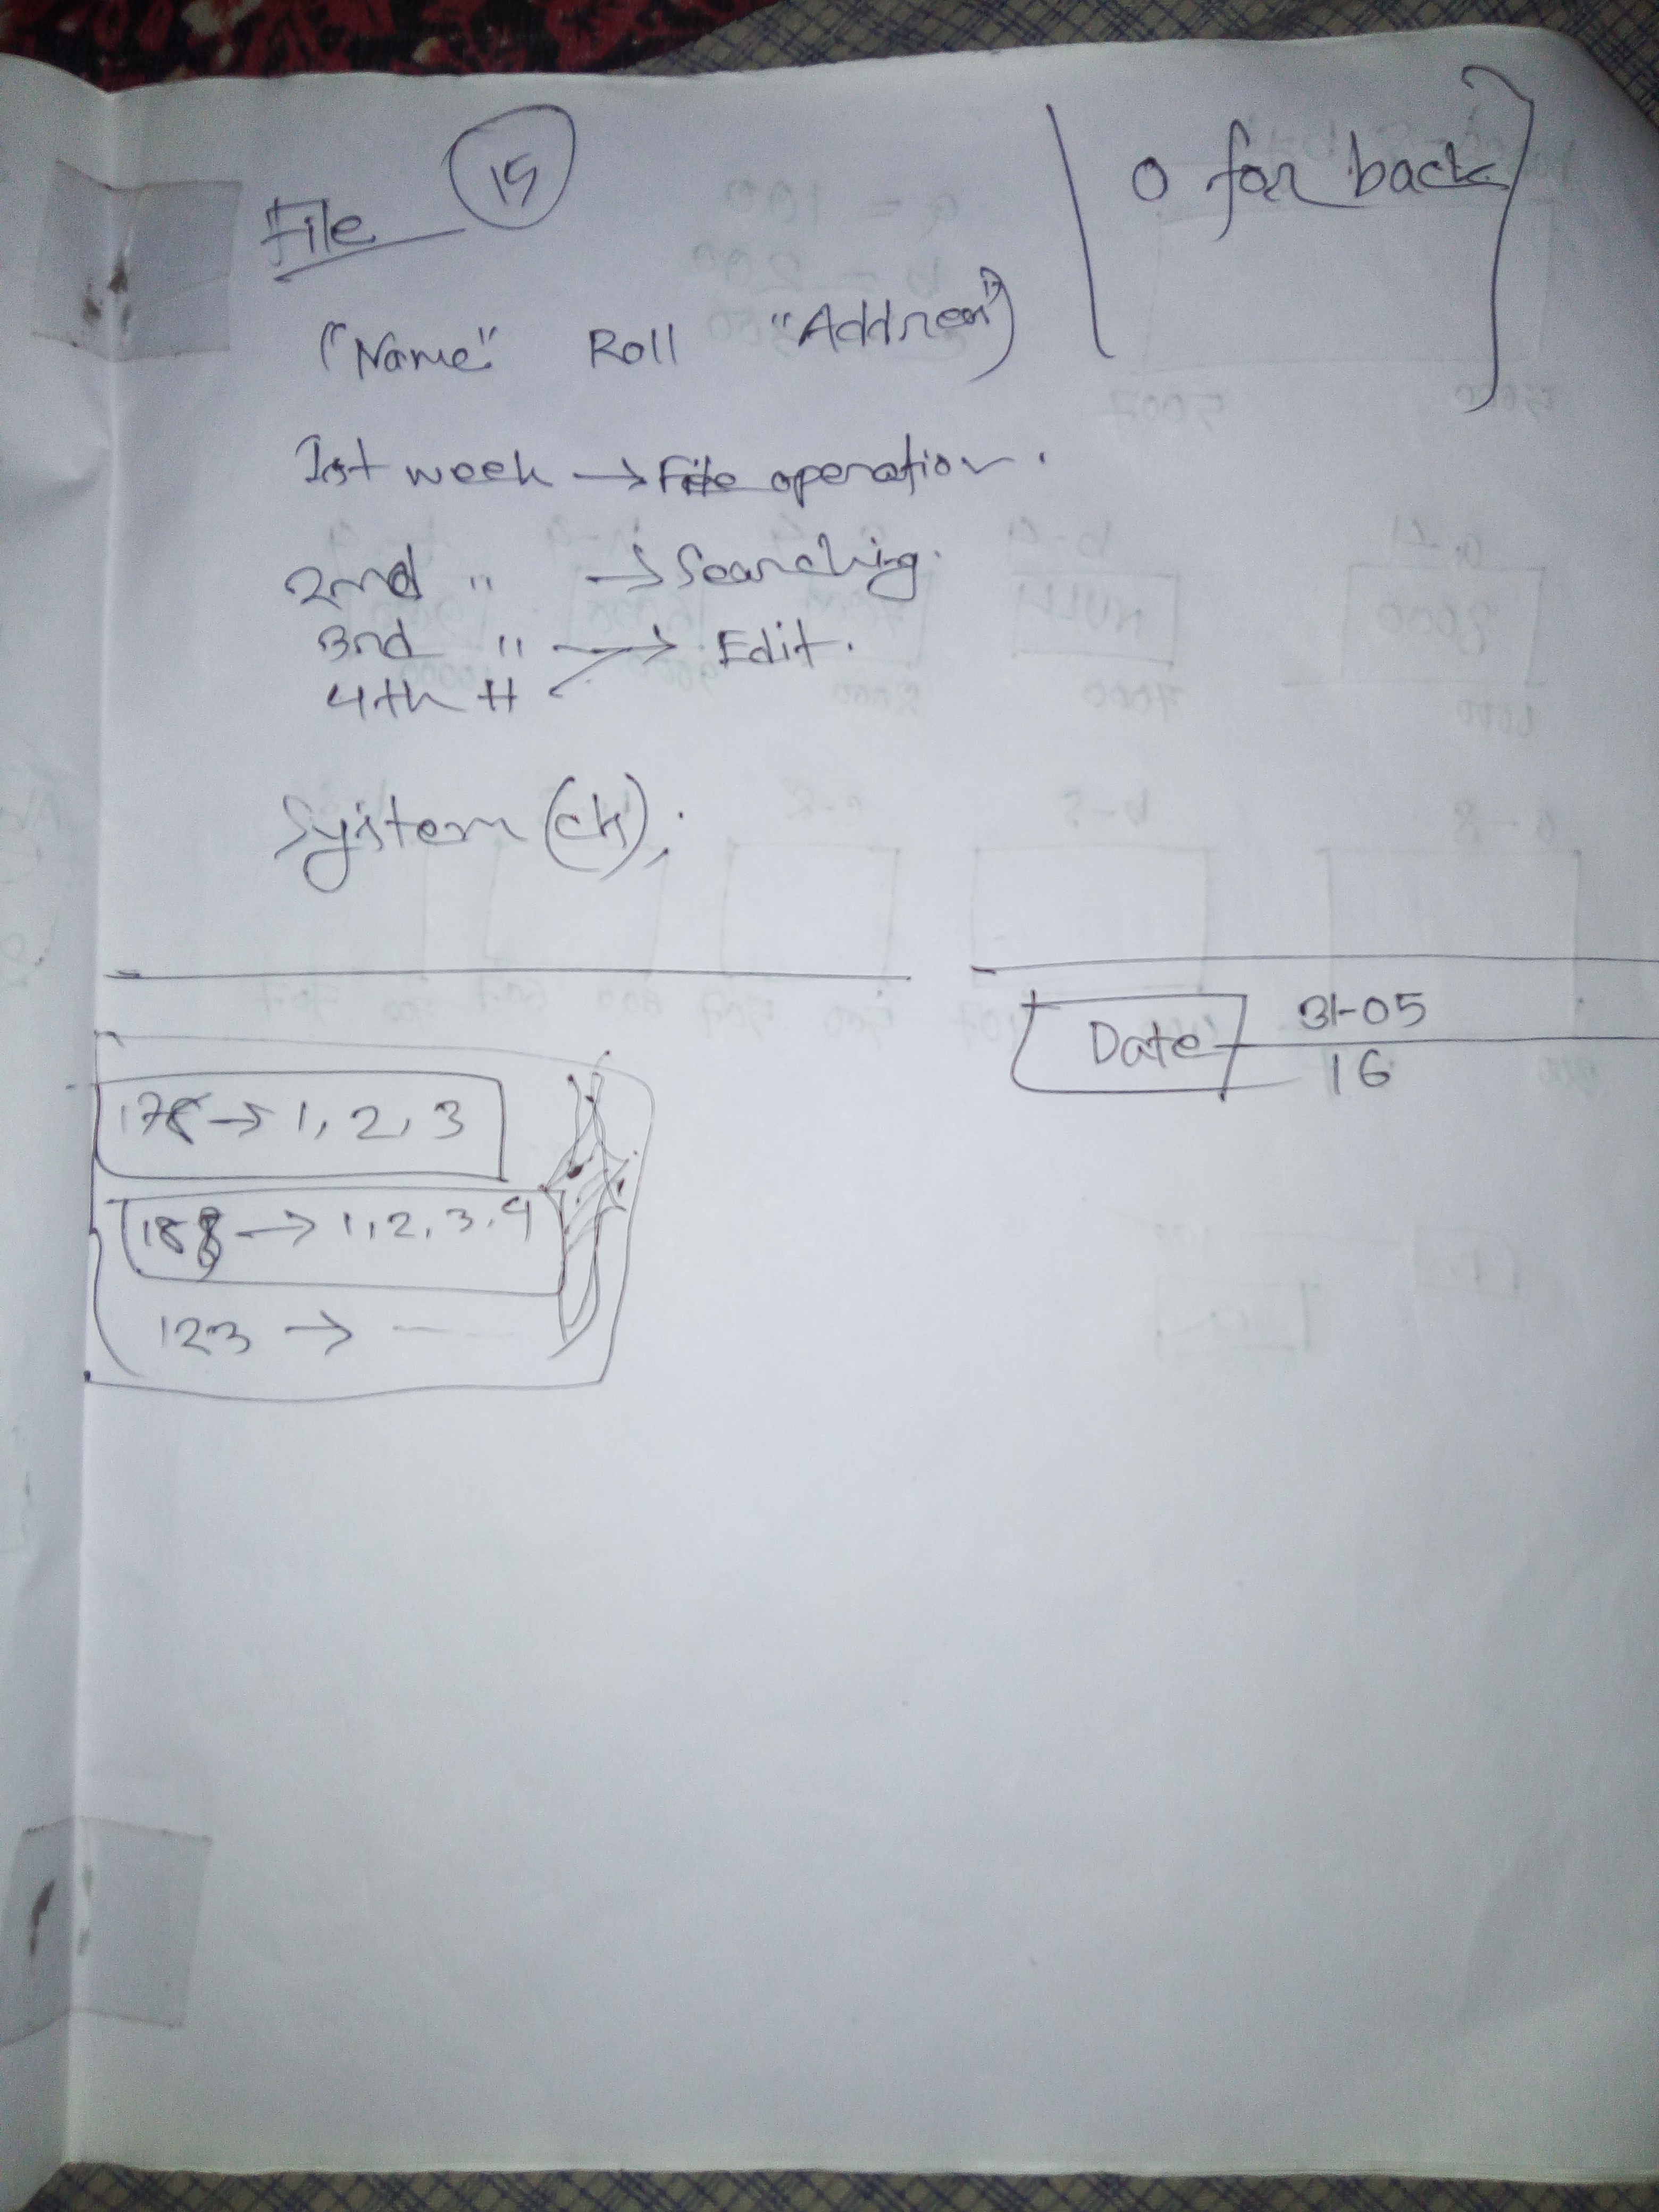 File 15
0 for back
("Name" Roll "Address")
1st week → File operation.
2nd " → Searching.
3rd " → Edit.
4th "
System (ch);
Date 31-05
16
178 → 1, 2, 3
188 → 1, 2, 3, 4
123 →